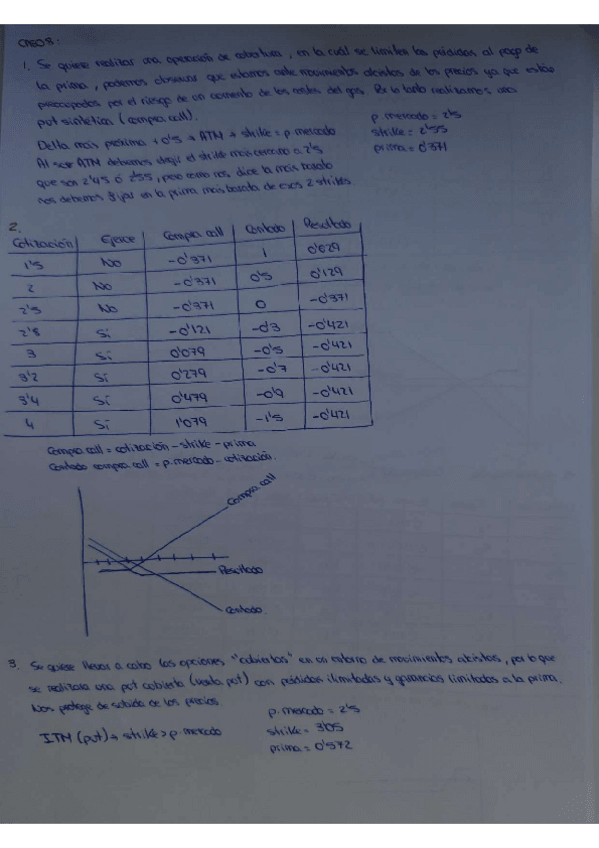 CASO 8:
1. Se quiere realizar una operación de cobertura, en la cuál se limiten las pérdidas al pago de
la prima, podemos observar que estamos ante movimientos alcistas de los precios ya que están
preocupados por el riesgo de un aumento de los costes del gas. Por lo tanto realizamos una
put sintética (compra call).
p. mercado = 2'5
Delta más próxima + 0'5 → ATM → strike = p. mercado
strike = 2'55
Al ser ATM debemos elegir el strike más cercano a 2'5
prima = 0'371
que son 2'45 ó 2'55, pero como nos dice la más barata
nos debemos fijar en la prima más barata de esos 2 strikes
2.
Cotización Ejerce Compra call Contado Resultado
1'5 No -0'371 1 0'629
2 No -0'371 0'5 0'129
2'5 No -0'371 0 -0'371
2'8 Sí -0'121 -0'3 -0'421
3 Sí 0'079 -0'5 -0'421
3'2 Sí 0'279 -0'7 -0'421
3'4 Sí 0'479 -0'9 -0'421
4 Sí 1'079 -1'5 -0'421
Compra call = cotización - strike - prima
Contado compra call = p. mercado - cotización.
Compra call
Resultado
Contado.
3. Se quiere llevar a cabo las opciones "cubiertas" en un entorno de movimientos alcistas, por lo que
se realizará una put cubierta (venta put) con pérdidas ilimitadas y ganancias limitadas a la prima.
Nos protege de subida de los precios.
p. mercado = 2'5
ITM (put) → strike > p. mercado
strike = 3'05
prima = 0'572